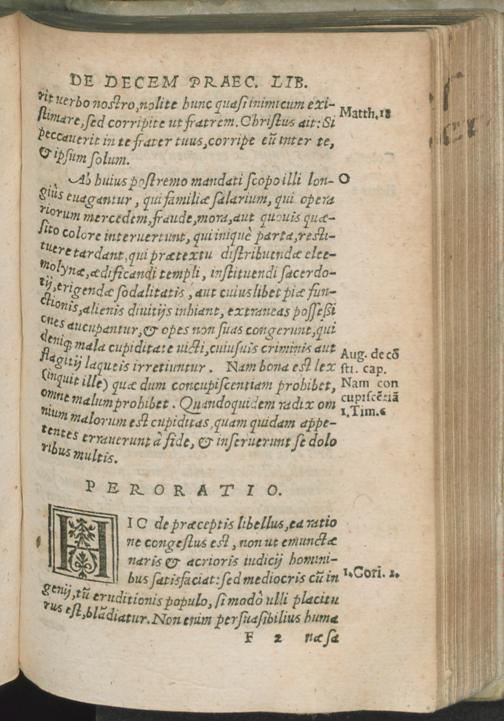 DE DECEM PRAEC. LIB.
rit verbo nostro, nolite hunc quasi inimicum exi-
stimare, sed corripite ut fratrem. Christus ait: Si
Matth. 18
peccauerit in te frater tuus, corripe eũ inter te,
& ipsum solum.
Ab huius postremo mandati scopo illi lon-
O
giùs euagantur, qui familiæ salarium, qui opera
riorum mercedem, fraude, mora, aut quouis quæ-
sito colore interuertunt, qui iniquè parta, resti-
tuere tardant, qui prætextu distribuendæ elee-
molynæ, ædificandi templi, instituendi sacerdo-
tij, erigendæ sodalitatis, aut cuiuslibet piæ fun-
ctionis, alienis diuitijs inhiant, extraneas possessi
ones aucupantur, & opes non suas congerunt, qui
deniq; mala cupiditate uicti, cuiusuis criminis aut
flagitij laqueis irretiuntur. Nam bona est lex
Aug. de cõ
(inquit ille) quæ dum concupiscentiam prohibet,
sti. cap.
omne malum prohibet. Quandoquidem radix om
Nam con
cupiscẽtiã
nium malorum est cupiditas, quam quidam appe-
1. Tim. 6
tentes errauerunt à fide, & inseruerunt se dolo
ribus multis.
PERORATIO.
HIC de præceptis libellus, ea ratio
ne congestus est, non ut emunctæ
naris & acrioris iudicij homini-
bus satisfaciat: sed mediocris cũ in
1. Cori. 2.
genij, tũ eruditionis populo, si modò ulli placitu
rus est, blãdiatur. Non enim persuasibilius huma
F 2 næ sa